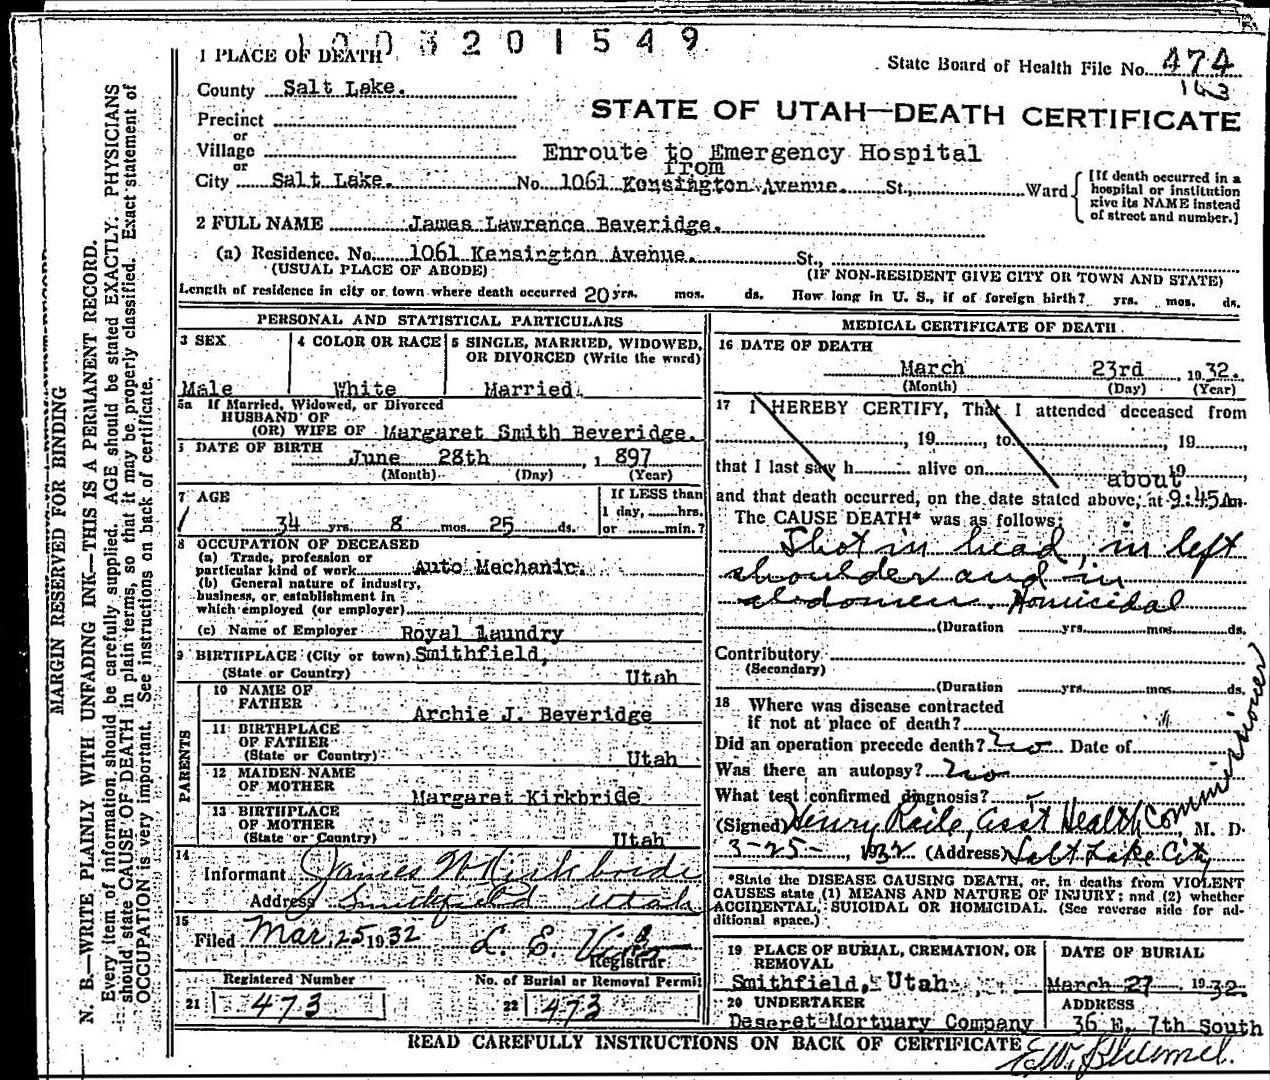 1003201549
1 PLACE OF DEATH
State Board of Health File No. 474
163
County Salt Lake.
STATE OF UTAH—DEATH CERTIFICATE
Precinct
or
Village
Enroute to Emergency Hospital
or
from
City Salt Lake. No. 1061 Kensington Avenue. St., Ward
[If death occurred in a hospital or institution give its NAME instead of street and number.]
2 FULL NAME James Lawrence Beveridge.
(a) Residence. No. 1061 Kensington Avenue. St.,
(USUAL PLACE OF ABODE) (IF NON-RESIDENT GIVE CITY OR TOWN AND STATE)
Length of residence in city or town where death occurred 20 yrs. mos. ds. How long in U. S., if of foreign birth? yrs. mos. ds.
PERSONAL AND STATISTICAL PARTICULARS
3 SEX
Male
4 COLOR OR RACE
White
5 SINGLE, MARRIED, WIDOWED,
OR DIVORCED (Write the word)
Married.
5a If Married, Widowed, or Divorced
HUSBAND OF
(OR) WIFE OF Margaret Smith Beveridge.
DATE OF BIRTH
June 28th, 1897
(Month) (Day) (Year)
7 AGE
34 yrs. 8 mos. 25 ds.
If LESS than
1 day, hrs.
or min.?
8 OCCUPATION OF DECEASED
(a) Trade, profession or
particular kind of work Auto Mechanic.
(b) General nature of industry,
business, or establishment in
which employed (or employer)
(c) Name of Employer Royal Laundry
9 BIRTHPLACE (City or town) Smithfield,
(State or Country) Utah
PARENTS
10 NAME OF
FATHER Archie J. Beveridge
11 BIRTHPLACE
OF FATHER
(State or Country) Utah
12 MAIDEN NAME
OF MOTHER Margaret Kirkbride
13 BIRTHPLACE
OF MOTHER
(State or Country) Utah
14
Informant James W Kirkbride
Address Smithfield Utah
15
Filed Mar. 25 1932 L. E.
Registrar
Registered Number
21 473
No. of Burial or Removal Permit
22 473
MEDICAL CERTIFICATE OF DEATH
16 DATE OF DEATH
March 23rd, 1932.
(Month) (Day) (Year)
17 I HEREBY CERTIFY, That I attended deceased from
, 19, to, 19,
that I last saw h alive on 19
about
and that death occurred, on the date stated above, at 9:45Am.
The CAUSE DEATH* was as follows:
Shot in head, in left
shoulder and in
abdomen. Homicidal
(Duration yrs. mos. ds.
Contributory
(Secondary)
(Duration yrs. mos. ds.
18 Where was disease contracted
if not at place of death?
Did an operation precede death? no Date of
Was there an autopsy? no
What test confirmed diagnosis? -
(Signed) Henry Raile, Ass't Health Commissioner, M. D.
3-25-, 1932 (Address) Salt Lake City
*State the DISEASE CAUSING DEATH, or, in deaths from VIOLENT
CAUSES state (1) MEANS AND NATURE OF INJURY; and (2) whether
ACCIDENTAL, SUICIDAL OR HOMICIDAL. (See reverse side for ad-
ditional space.)
19 PLACE OF BURIAL, CREMATION, OR
REMOVAL
Smithfield, Utah
DATE OF BURIAL
March 27 1932.
20 UNDERTAKER
Deseret Mortuary Company
ADDRESS
36 E. 7th South
READ CAREFULLY INSTRUCTIONS ON BACK OF CERTIFICATE
MARGIN RESERVED FOR BINDING
N. B.—WRITE PLAINLY WITH UNFADING INK—THIS IS A PERMANENT RECORD.
Every item of information should be carefully supplied. AGE should be stated EXACTLY. PHYSICIANS
should state CAUSE OF DEATH in plain terms, so that it may be properly classified. Exact statement of
OCCUPATION is very important. See instructions on back of certificate.